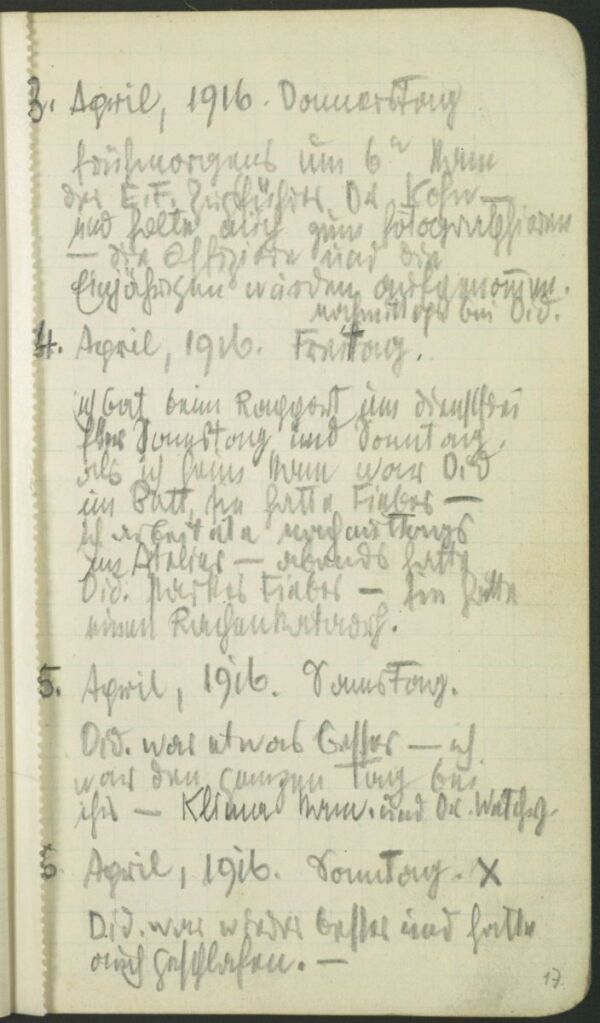 3. April, 1916. Donnerstag
frühmorgens um 6h kam
der E.F. Zugsführer Dr. Kohn —
und holte mich zum fotographieren
— die Offiziere und die
Einjährigen wurden aufgenommen.
nachmittags bei Did.
4. April, 1916. Freitag.
ich bat beim Rapport um dienstfrei
über Samstag und Sonntag.
als ich heim kam war Did
im Bett, sie hatte Fieber —
ich arbeitete nachmittags
im Atelier — abends hatte
Did. starkes Fieber — sie hatte
einen Rachenkatarrh.
5. April, 1916. Samstag.
Did. war etwas besser — ich
war den ganzen Tag bei
ihr — kam. und Dr.
6 April, 1916. Sonntag. X
Did. war wieder besser und hatte
auch geschlafen. —
17